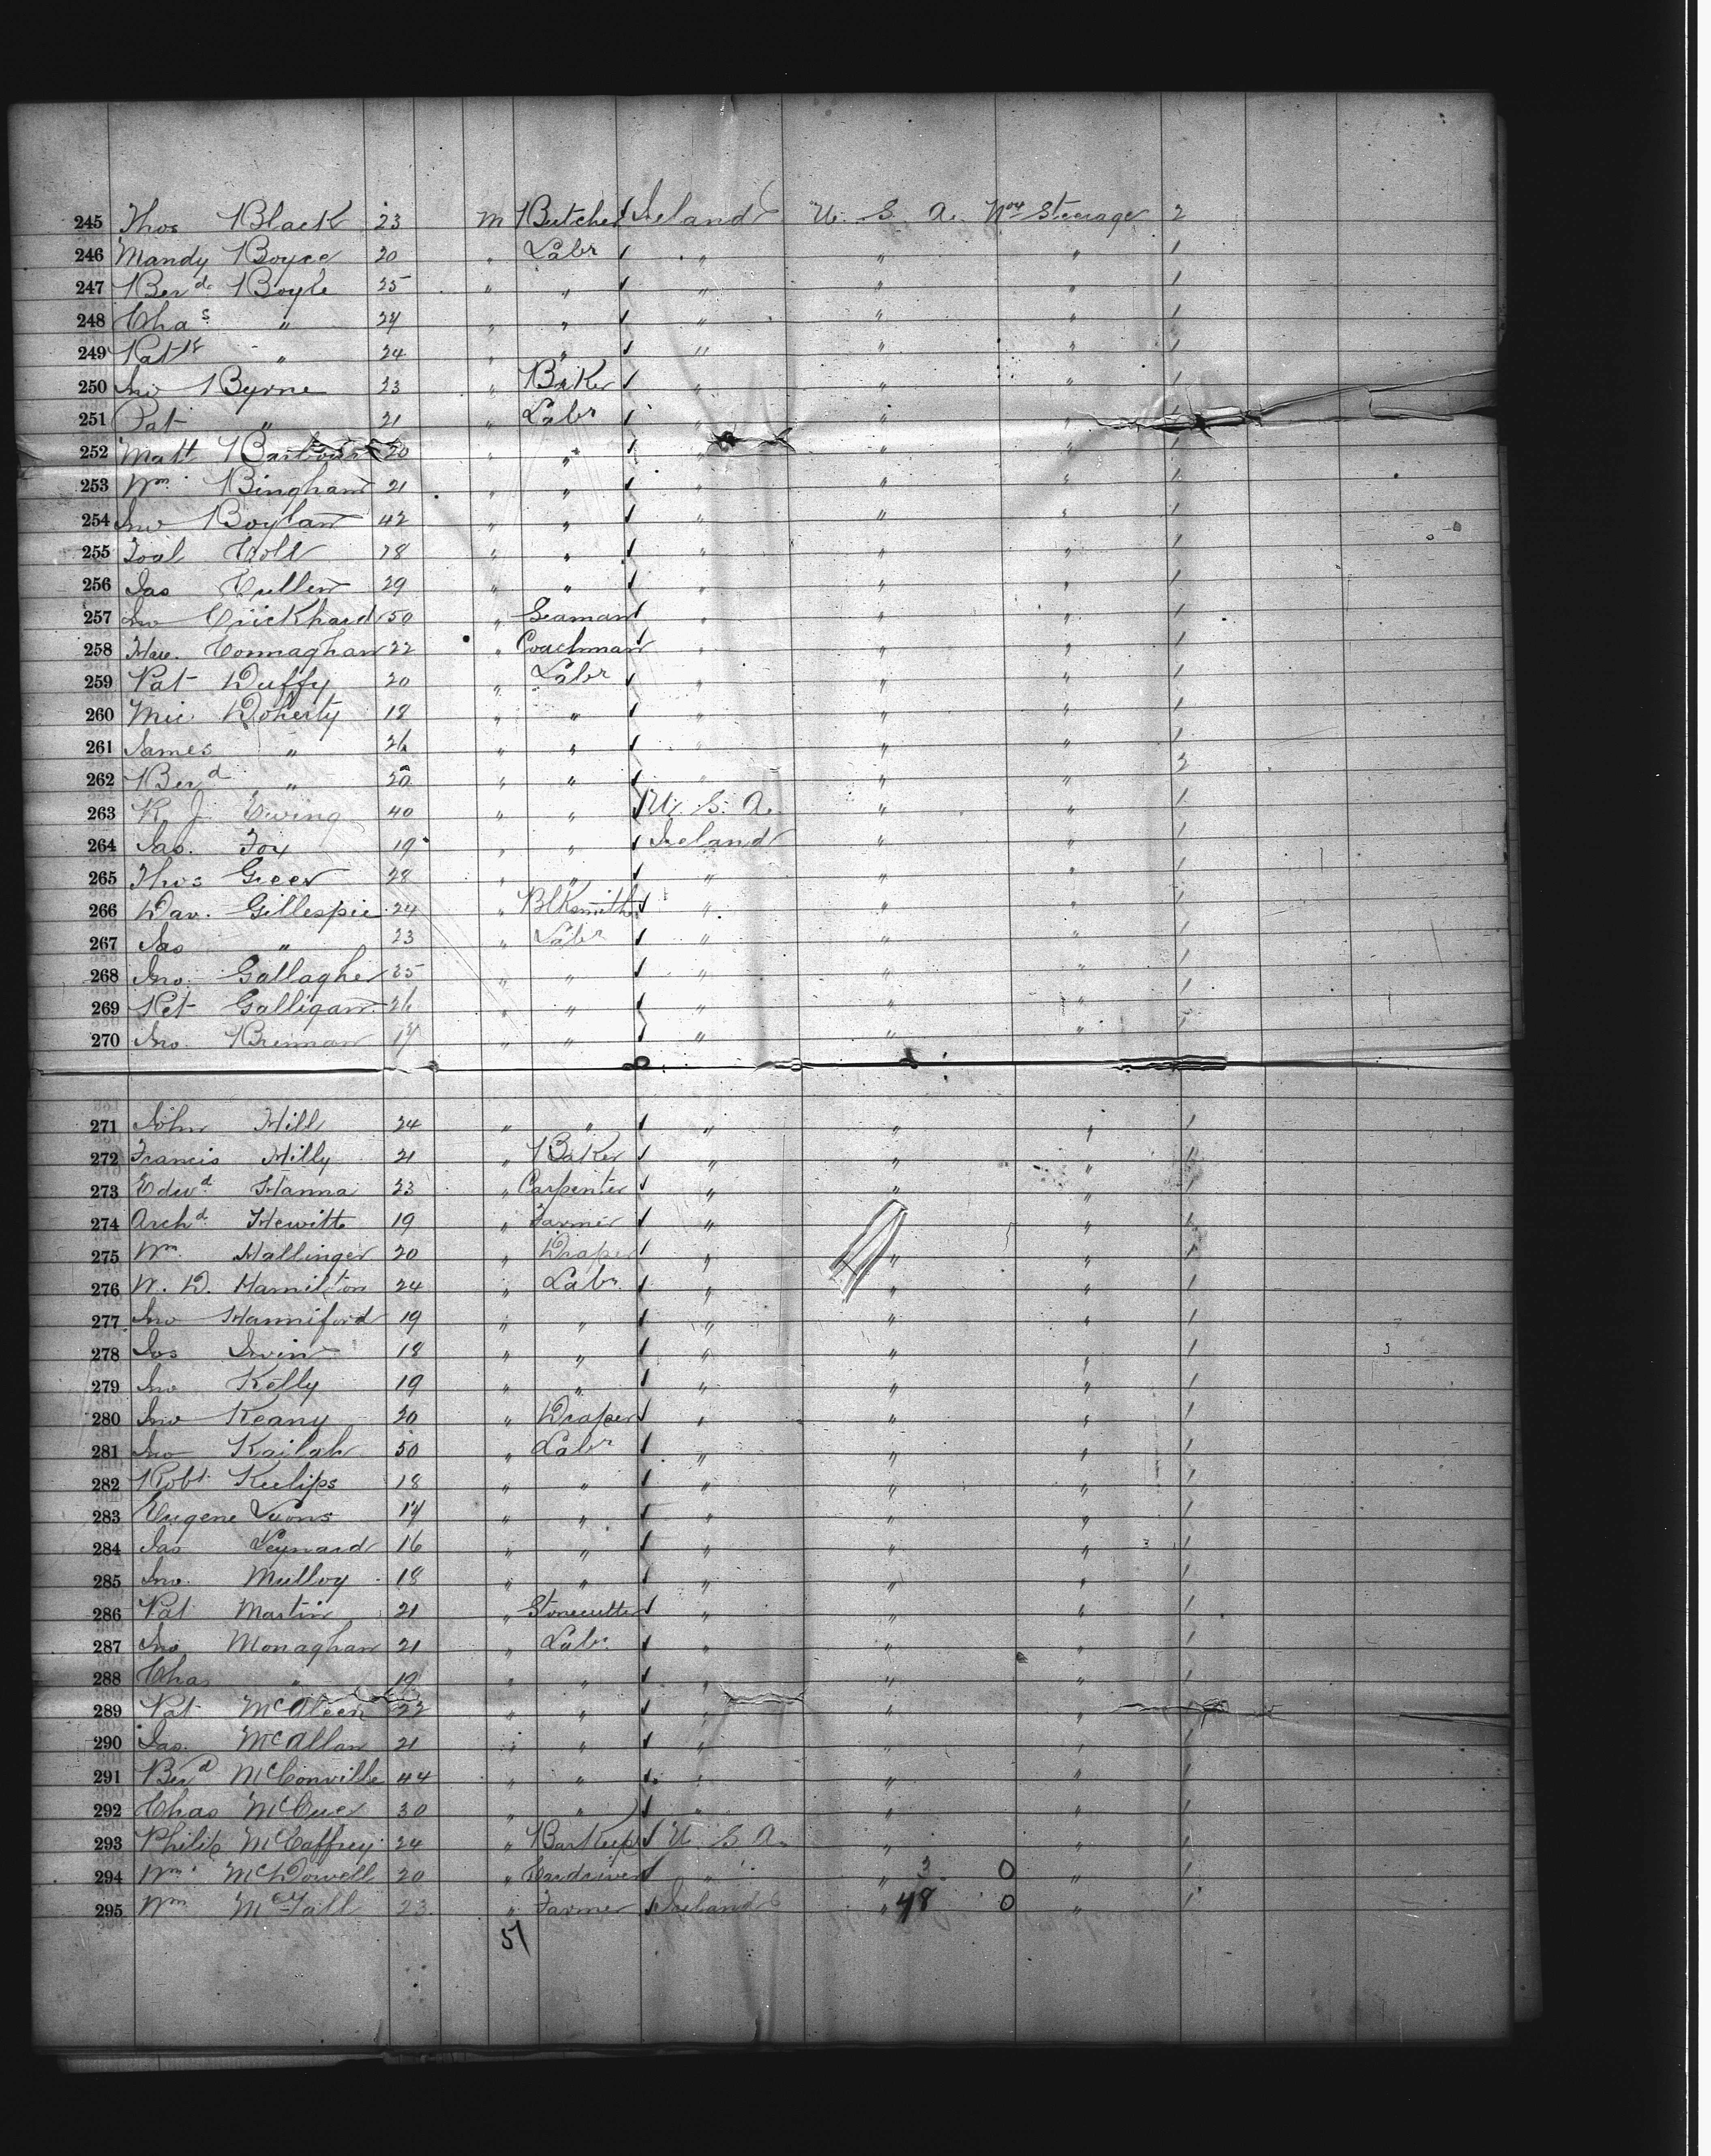 245 Thos Black 23 m Butcher Ireland U. S. A. Steerage 2
246 Mandy Boyce 20 " Labr " " " 1
247 Berd. Boyle 25 " " " " " 1
248 Chas " 24 " " " " " 1
249 Patk " 24 " " " " " 1
250 Jno Byrne 23 " Baker " " " 1
251 Pat " 21 " Labr " " "
252 Matt Barbour 20 " " " " " 1
253 Wm. Bingham 21 " " " " " 1
254 Jno Boylan 42 " " " " " 1
255 Toal Coll " " " " " 1
256 Jas Cullen 29 " " " " " 1
257 Jno Crickhard 50 " Seaman " " " 1
258 Connaghan 22 " Coachman " " " 1
259 Pat Duffy 20 " Labr " " " 1
260 Mic. Doherty 18 " " " " " 1
261 James " 26 " " " " " 1
262 Berd " 20 " " " " " 2
263 R. J. Ewing 40 " " U. S. A. " " 1
264 Jas. Fox 19 " " Ireland " " 1
265 Thos Greer 28 " " " " " 1
266 Dav. Gillespie 24 " Blksmith " " " 1
267 Jas " 23 " Labr " " " 1
268 Jno. Gallagher 25 " " " " " 1
269 Pet Galligan 26 " " " " " 1
270 Jno. Brennan " " " " " 1
271 John Hill 24 " " " " " 1
272 Francis Hilly 21 " Baker " " " 1
273 Edwd. Hanna 23 " Carpenter " " " 1
274 Archd. Hewitt 19 " Farmer " " " 1
275 Wm. Hallinger 20 " Draper " " " 1
276 W. D. Hamilton 24 " Labr. " " " 1
277 Jno Hanniford 19 " " " " " 1
278 Jos Irvin 18 " " " " " 1
279 Jno Kelly 19 " " " " " 1
280 Jno Keany 20 " Draper " " " 1
281 Jno Kailah 50 " Labr " " " 1
282 Robt. Keelips 18 " " " " " 1
283 Eugene Lyons 17 " " " " " 1
284 Jas Leynard 16 " " " " " 1
285 Jno. Mulloy 18 " " " " " 1
286 Pat Martin 21 " Stonecutter " " " 1
287 Jno Monaghan 21 " Labr. " " " 1
288 Chas " 19 " " " " " 1
289 Pat McAleen 22 " " " " "
290 Jas. McAllan 21 " " " " " 1
291 Berd McConville 44 " " " " " 1
292 Chas McCue 30 " " " " " 1
293 Philip McCaffrey 24 " Barkeep U. S. A. " " 1
294 Wm. McDowell 20 " Cardriver " " 3 0 " 1
295 Wm McFall 23 " Farmer Ireland " 48 0 " 1
51